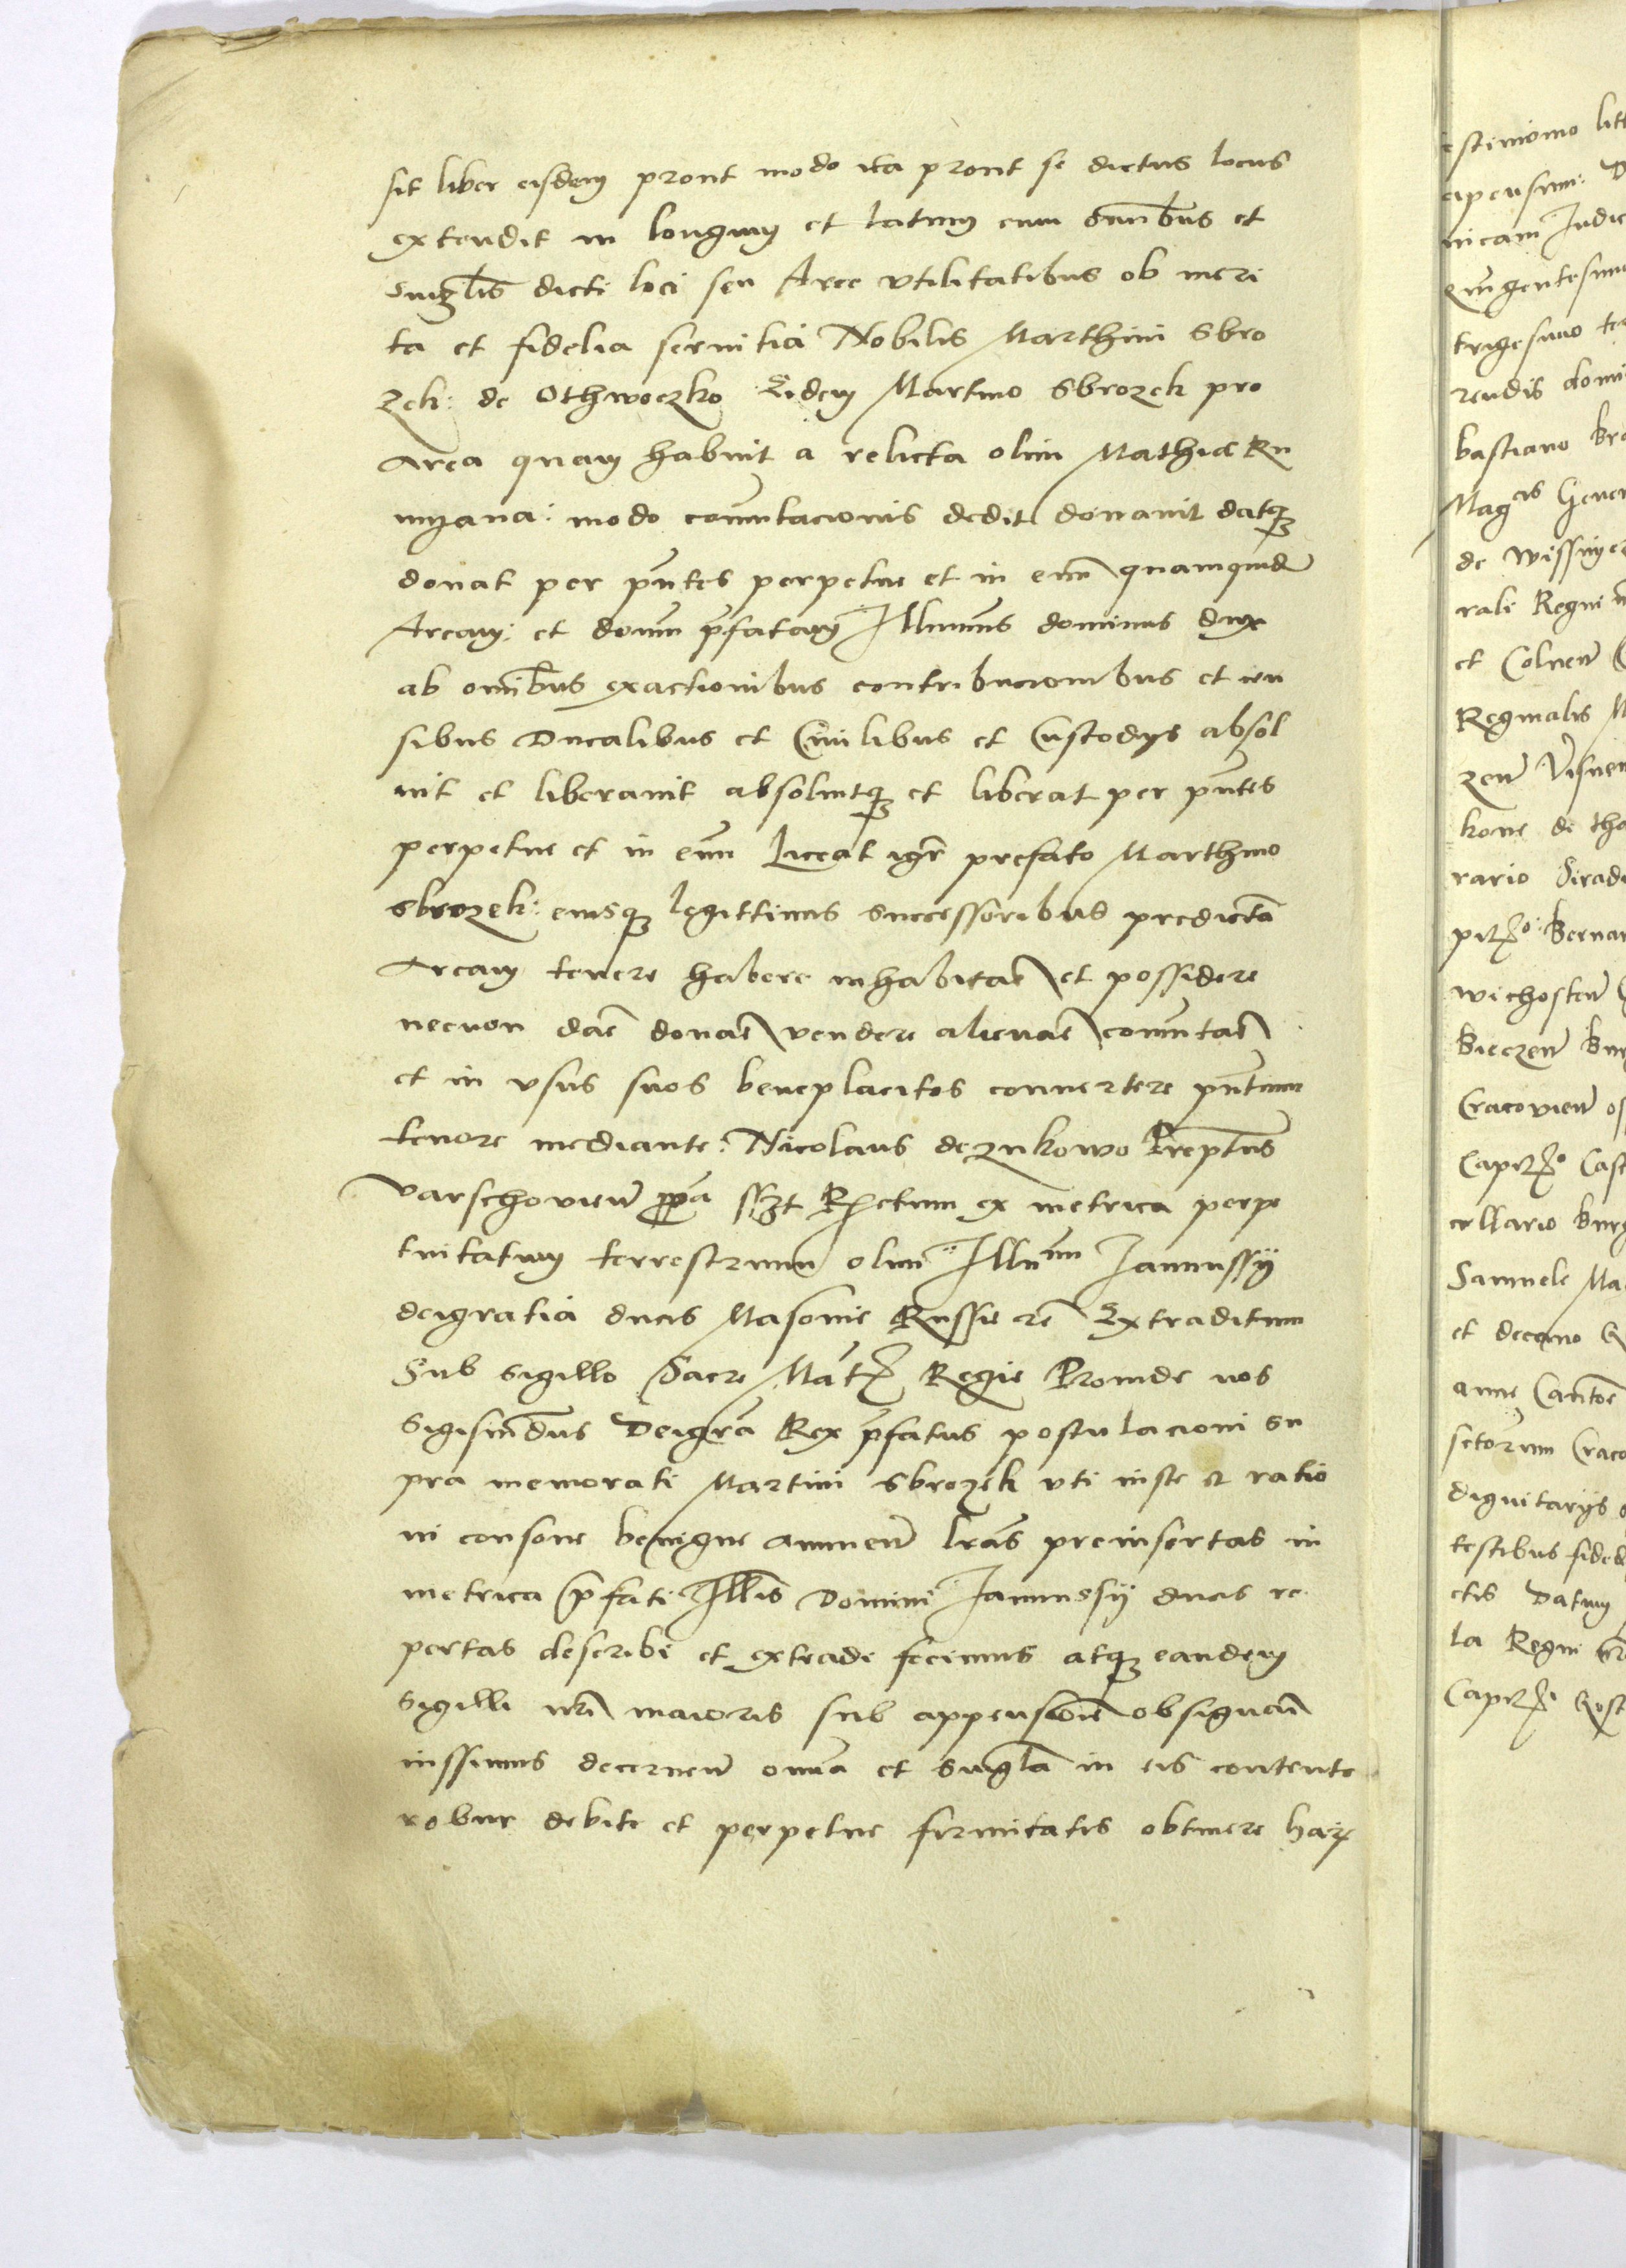 sit liber eisdem prout modo ita prout se dictus locus
extendit in longum et latum cum omnibus et
singlis dicti loci seu Aree vtilitatibus ob meri
ta et fidelia seruitia Nobilis Marthini Sbro
zek: de Othwoczko Eidem Martino Sbrozek pro
area quam habuit a relicta olim Mathie Ru
modo comutacionis dedit donauit datq
donat per pntes perpetue et in eum quamquid
Aream: et domum pfatam Illumus dominus dux
ab omibus exactionibus contribucionibus et cen
sibus Ducalibus et Ciuilibus et Custodys absol
uit et liberauit absoluitq et liberat per pntes
perpetue et in eum Liceat igr prefato Marthino
sbrozek: eiusq legittimis successoribus predicta
Aream tenere habere inhabitare et possidere
necnon dare donare vendere alienare comutare
et in vsus suos beneplacitos conuertere pntium
tenore mediante: Nicolaus de Zukowo Preptus
varschouien ppa sszt Rectum ex metrica perpe
tuitatum terrestrium olim Illumi Ianussÿ
deigratia ducis Masouie Russie rc Extraditum
Sub sigillo Sacre Mat Regie Proinde nos
Sigismdus Deigra Rex pfatus postulacioni su
pra memorati Martini sbrozek vti iuste et ratio
ni consone benigne annuen lras preinsertas in
metrica pfati Illis Domini Ianussÿ ducis re
pertas describi et extradi fecimus atq eandem
sigilli nri maioris sub appensione obsignari
iussimus decernen omia et singla in eis contenta
robur debite et perpetue firmitatis obtinere har
estimonio litt
apensum: D
nicam Iudic
quingentesimo
trigesimo te
rendis domi
bastiano Bra
Magcis Gener
de wissnyc
rali Regni n
et Colnen
Reginalis M
zen Visnen
kone de tha
rario Siradi
Bernar
wichosten
Bieczen Bur
Cracouien os
Cast
cellario Burg
Samuele Ma
et decano
anne Cantore
setorum Craco
dignitarÿs
testibus fided
ctis Datum
la Regni nr